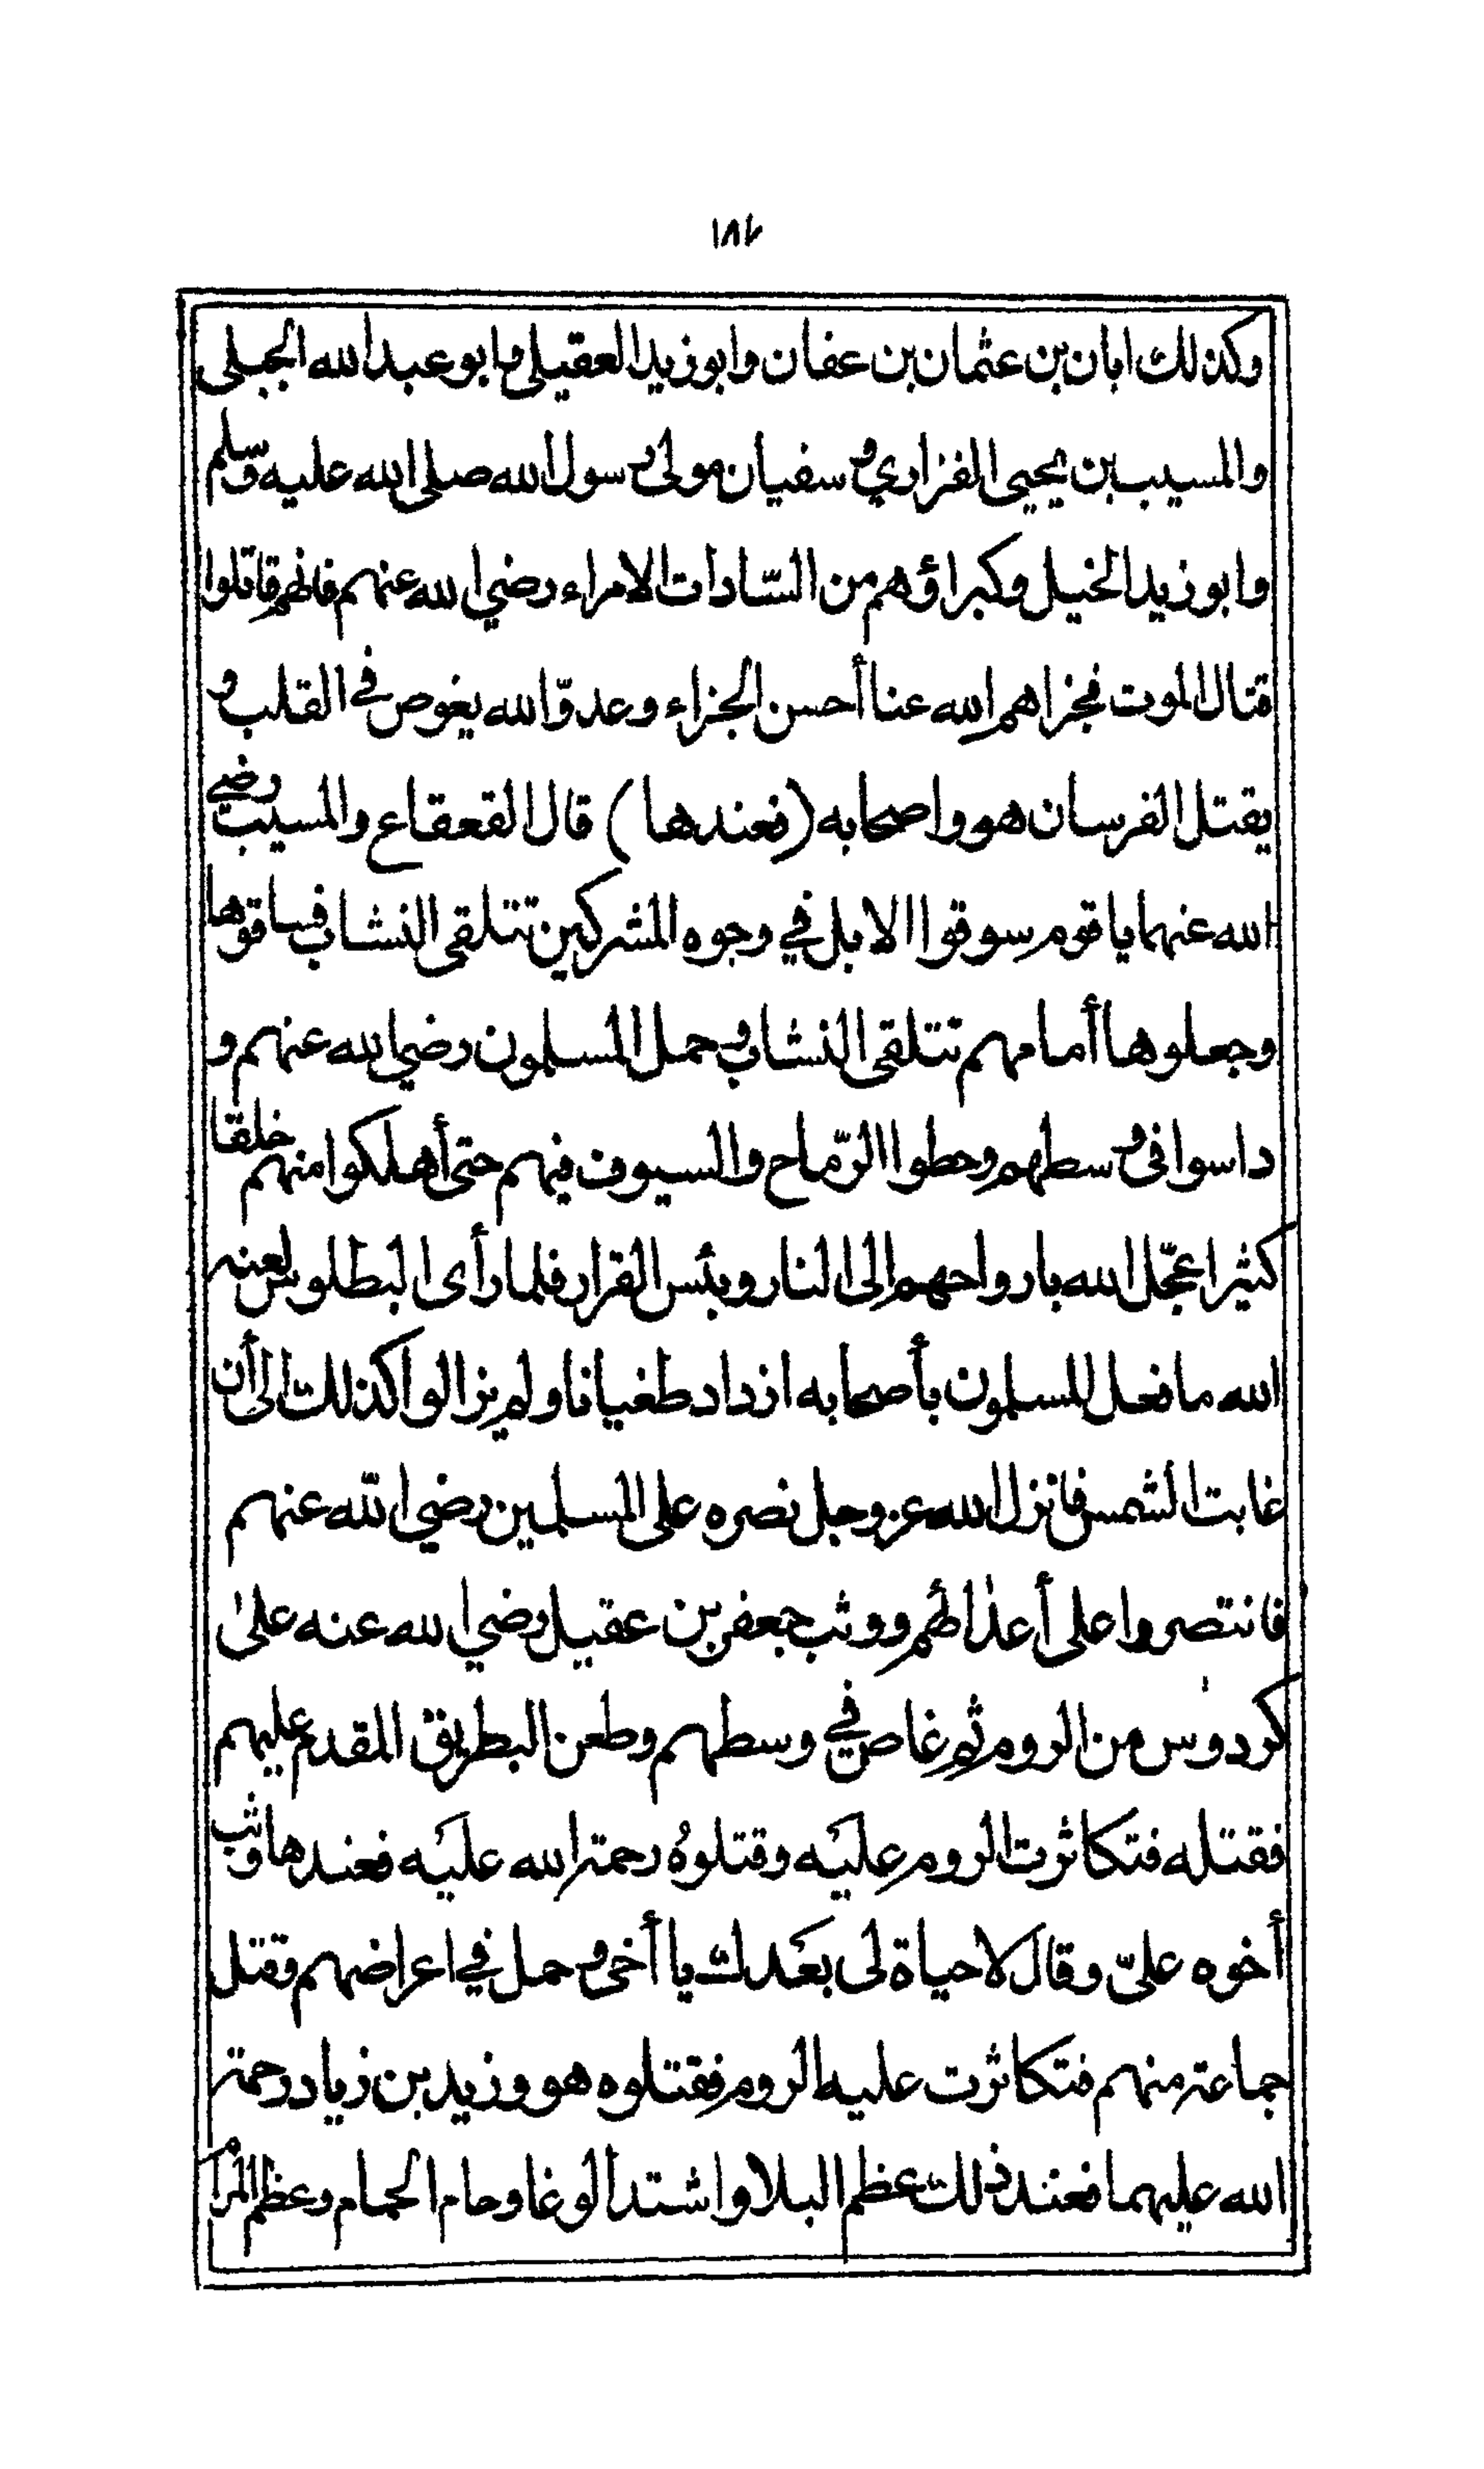 ١٨٧
وكذلك ابان بن عثمان بن عفان وابو زيد العقيلي وابو عبد الله الجبلى
والمسيب بن يحيى الفزاري وسفيان مولى رسول الله صلى الله عليه وسلم
وابو زيد الخيل وكبراؤهم من السّادات الامراء رضي الله عنهم فانهم قاتلوا
قتال الموت فجزاهم الله عنا أحسن الجزاء وعدوّ الله يغوص في القلب و
يقتل الفرسان هو واصحابه (فعندها) قال القعقاع والمسيب رضي
الله عنهما يا قوم سوقوا الابل في وجوه المشركين تتلقى النشاب فساقوها
وجعلوها أمامهم تتلقى النشاب وحمل المسلمون رضي الله عنهم و
داسوا فى وسطهم وحطوا الرّماح والسيوف فيهم حتى أهلكوا منهم خلقا
كثيرا عجّل الله بارواحهم إلى النار وبئس القرار فلما رأى البطلوس لعنه
الله ما فعل المسلمون بأصحابه ازداد طغيانا ولم يزالوا كذلك إلى أن
غابت الشمس فانزل الله عز وجل نصره على المسلمين رضي الله عنهم
فانتصروا على أعدائهم ووثب جعفر بن عقيل رضي الله عنه على
كردوس من الروم ثم غاص في وسطهم وطعن البطريق المقدم عليهم
فقتله فتكاثرت الروم عليَه وقتلوهُ رحمة الله عليَه فعندها وثب
أخوه عليّ وقال لا حياة لى بعَدك يا أخى وحمل في اعراضهم وقتل
جماعة منهم فتكاثرت عليه الروم فقتلوه هو وزيد بن زياد رحمة
الله عليهما فعند ذلك عظم البلا واشتد الوغا وحام الحمام وعظم المرام